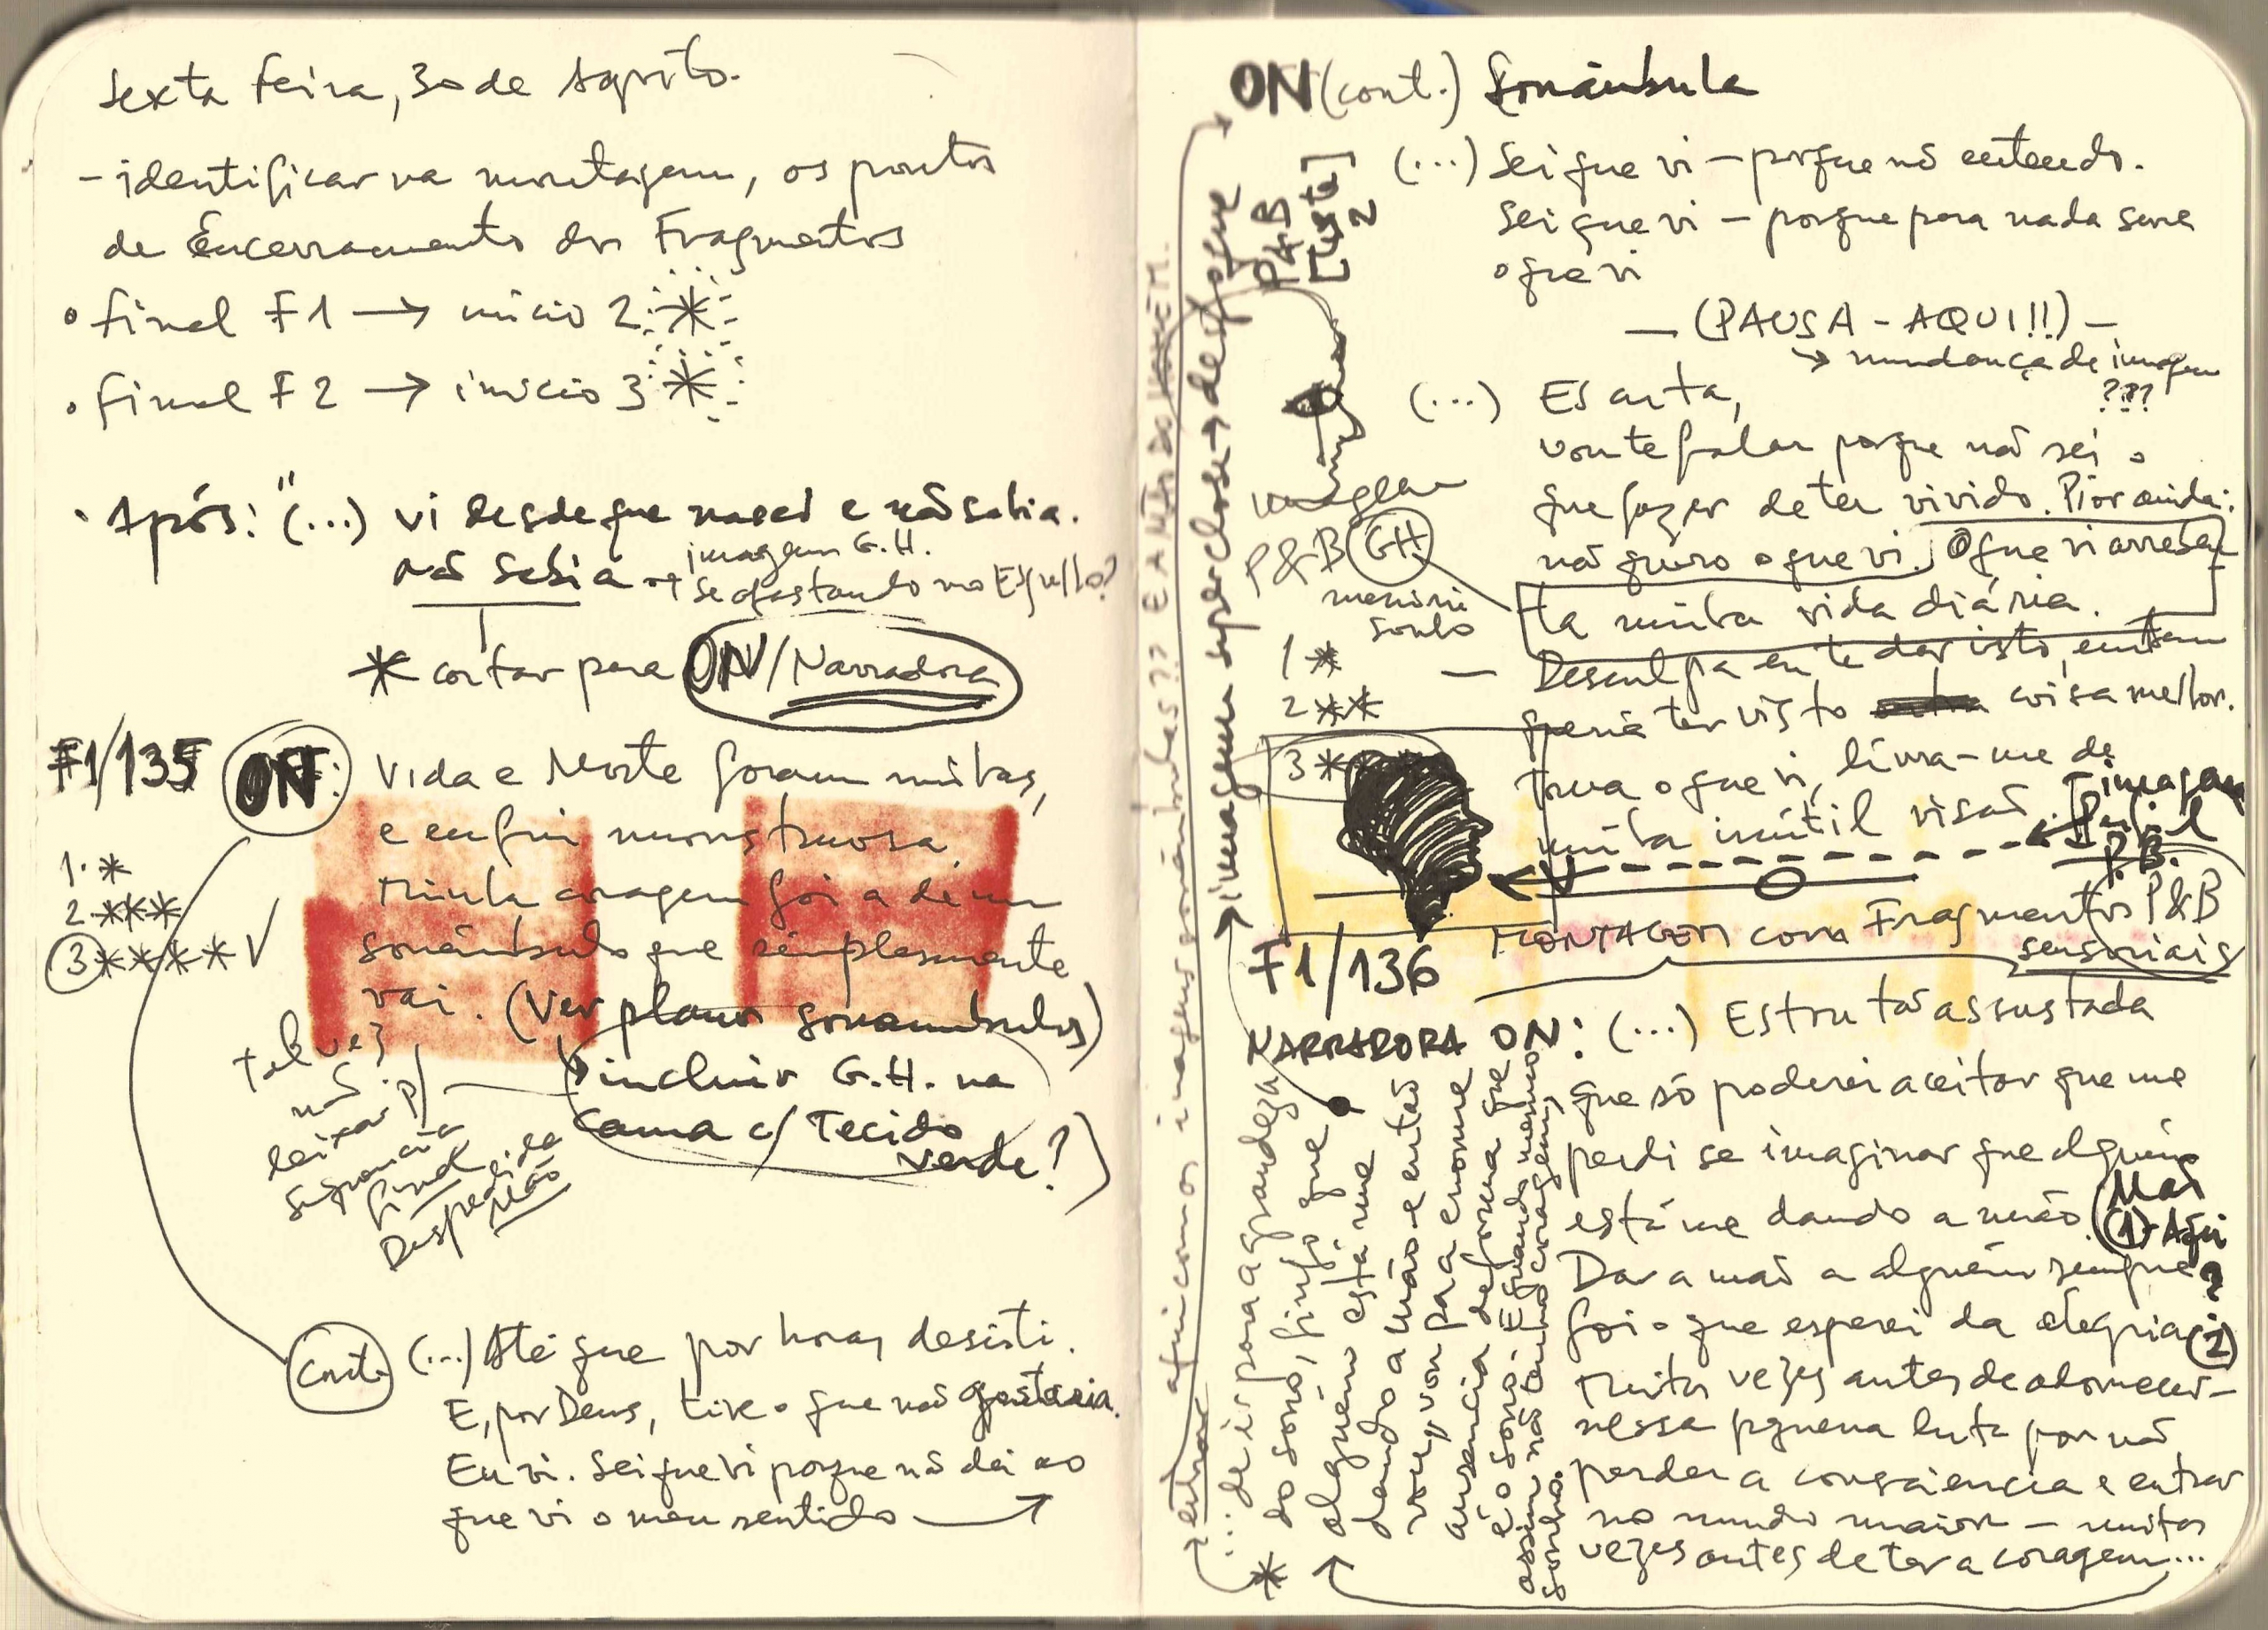 Sexta feira, 30 de Agosto.
- identificar na montagem, os pontos
de Encerramento dos Fragmentos
• final F1 → início 2 *
• final F2 → início 3 *
• Após: "(...) vi desde que nasci e não sabia.
não sabia → imagem G.H.
se afastando no Espelho?
* cortar para ON/Narradora
F1/135 ON: Vida e Morte foram minhas,
e eu fui monstruosa.
Minha coragem foi a de um
sonâmbulo que simplesmente
vai. (Ver planos sonambulos)
1. *
2. ***
3 **** √
incluir G.H. na
cama c/ Tecido
verde?)
talvez
não
deixar p/
sequencia
final
Despedida
Mão
Cont. (...) Até que por horas desisti.
E, por Deus, tive o que não gostaria.
Eu vi. Sei que vi porque não dei ao
que vi o meu sentido →
ON (cont.) Sonâmbula
(...) Sei que vi – porque não entendo.
Sei que vi – porque para nada serve
o que vi
— (PAUSA - AQUI!!) —
→ mudança de imagem
???
(...) Escuta,
vou te falar porque não sei o
que fazer de ter vivido. Pior ainda:
não quero o que vi. O que vi arreben
ta minha vida diária.
— Desculpa eu te dar isto, eu bem
queria ter visto coisa melhor.
Toma o que vi, livra-me de
minha inútil visão.
[imagem
Perfil
P.B.
P&B
[Teste]
2
imagem
P&B GH
1 *
2 **
3 ***
MONTAGEM com Fragmentos P&B
sensoriais
F1/136
NARRADORA ON: (...) Estou tão assustada
que só poderei aceitar que me
perdi se imaginar que alguém
está me dando a mão.
Dar a mão a alguém sempre
foi o que esperei da alegria.
Muitas vezes antes de adormecer –
nessa pequena luta por não
perder a consciência e entrar
no mundo maior – muitas
vezes antes de ter a coragem...
Mão
(1) - Aqui
?
(2)
* ... de ir para a grandeza
do sono, finjo que
alguém está me
dando a mão e então
vou, vou para a enorme
ausência de forma que
é o sono. E quando mesmo
assim não tenho coragem,
sonho.
imagem superclose → desfoque
entrar aqui com os imagens sonâmbulas?? E A MÃO DO HOMEM.